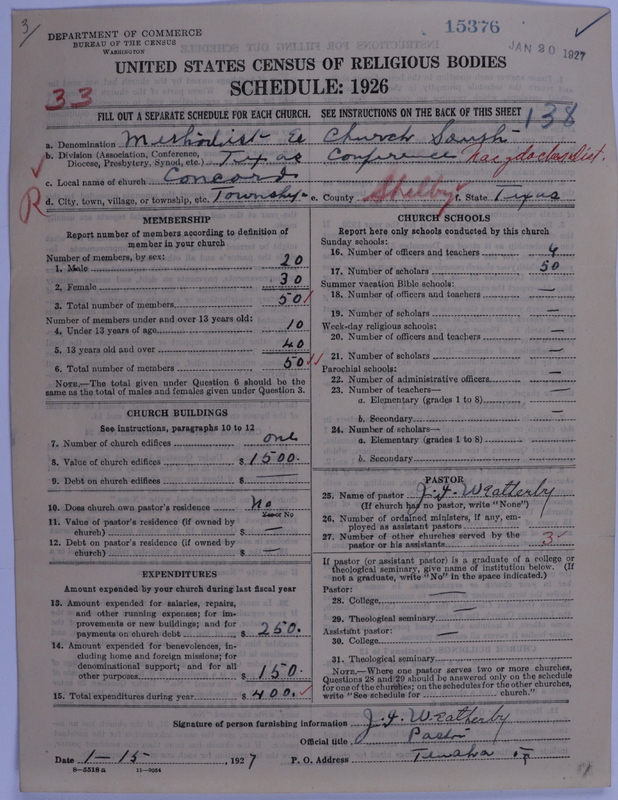 3
15376
DEPARTMENT OF COMMERCE
BUREAU OF THE CENSUS
WASHINGTON
JAN 20 1927
UNITED STATES CENSUS OF RELIGIOUS BODIES
SCHEDULE: 1926
33
138
FILL OUT A SEPARATE SCHEDULE FOR EACH CHURCH. SEE INSTRUCTIONS ON THE BACK OF THIS SHEET
a. Denomination Methodist E Church South
b. Division (Association, Conference, Diocese, Presbytery, Synod, etc.) Texas Conference Nacogdoches Dist.
c. Local name of church Concord
R
d. City, town, village, or township, etc. Township e. County Shelby f. State Texas
MEMBERSHIP
Report number of members according to definition of
member in your church
Number of members, by sex:
1. Male 20
2. Female 30
3. Total number of members 50
Number of members under and over 13 years old:
4. Under 13 years of age 10
5. 13 years old and over 40
6. Total number of members 50
NOTE.—The total given under Question 6 should be the
same as the total of males and females given under Question 3.
CHURCH BUILDINGS
See instructions, paragraphs 10 to 12
7. Number of church edifices one
8. Value of church edifices $ 1500.
9. Debt on church edifices $ —
10. Does church own pastor's residence No
Yes or No
11. Value of pastor's residence (if owned by
church) $ —
12. Debt on pastor's residence (if owned by
church) $ —
EXPENDITURES
Amount expended by your church during last fiscal year
13. Amount expended for salaries, repairs,
and other running expenses; for im-
provements or new buildings; and for
payments on church debt $ 250.
14. Amount expended for benevolences, in-
cluding home and foreign missions; for
denominational support; and for all
other purposes $ 150.
15. Total expenditures during year $ 400.
CHURCH SCHOOLS
Report here only schools conducted by this church
Sunday schools:
16. Number of officers and teachers 4
17. Number of scholars 50
Summer vacation Bible schools:
18. Number of officers and teachers —
19. Number of scholars —
Week-day religious schools:
20. Number of officers and teachers —
21. Number of scholars —
Parochial schools:
22. Number of administrative officers —
23. Number of teachers—
a. Elementary (grades 1 to 8) —
b. Secondary —
24. Number of scholars—
a. Elementary (grades 1 to 8) —
b. Secondary
PASTOR
25. Name of pastor J. F. Weatherby
(If church has no pastor, write "None")
26. Number of ordained ministers, if any, em-
ployed as assistant pastors
27. Number of other churches served by the
pastor or his assistants 3
If pastor (or assistant pastor) is a graduate of a college or
theological seminary, give name of institution below. (If
not a graduate, write "No" in the space indicated.)
Pastor:
28. College —
29. Theological seminary —
Assistant pastor:
30. College —
31. Theological seminary
NOTE.—Where one pastor serves two or more churches,
Questions 28 and 29 should be answered only on the schedule
for one of the churches; on the schedules for the other churches,
write "See schedule for church."
Signature of person furnishing information J. F. Weatherby
Official title Pastor
Date 1-15, 1927 P. O. Address Tenaha
8—5518 a 11—9034